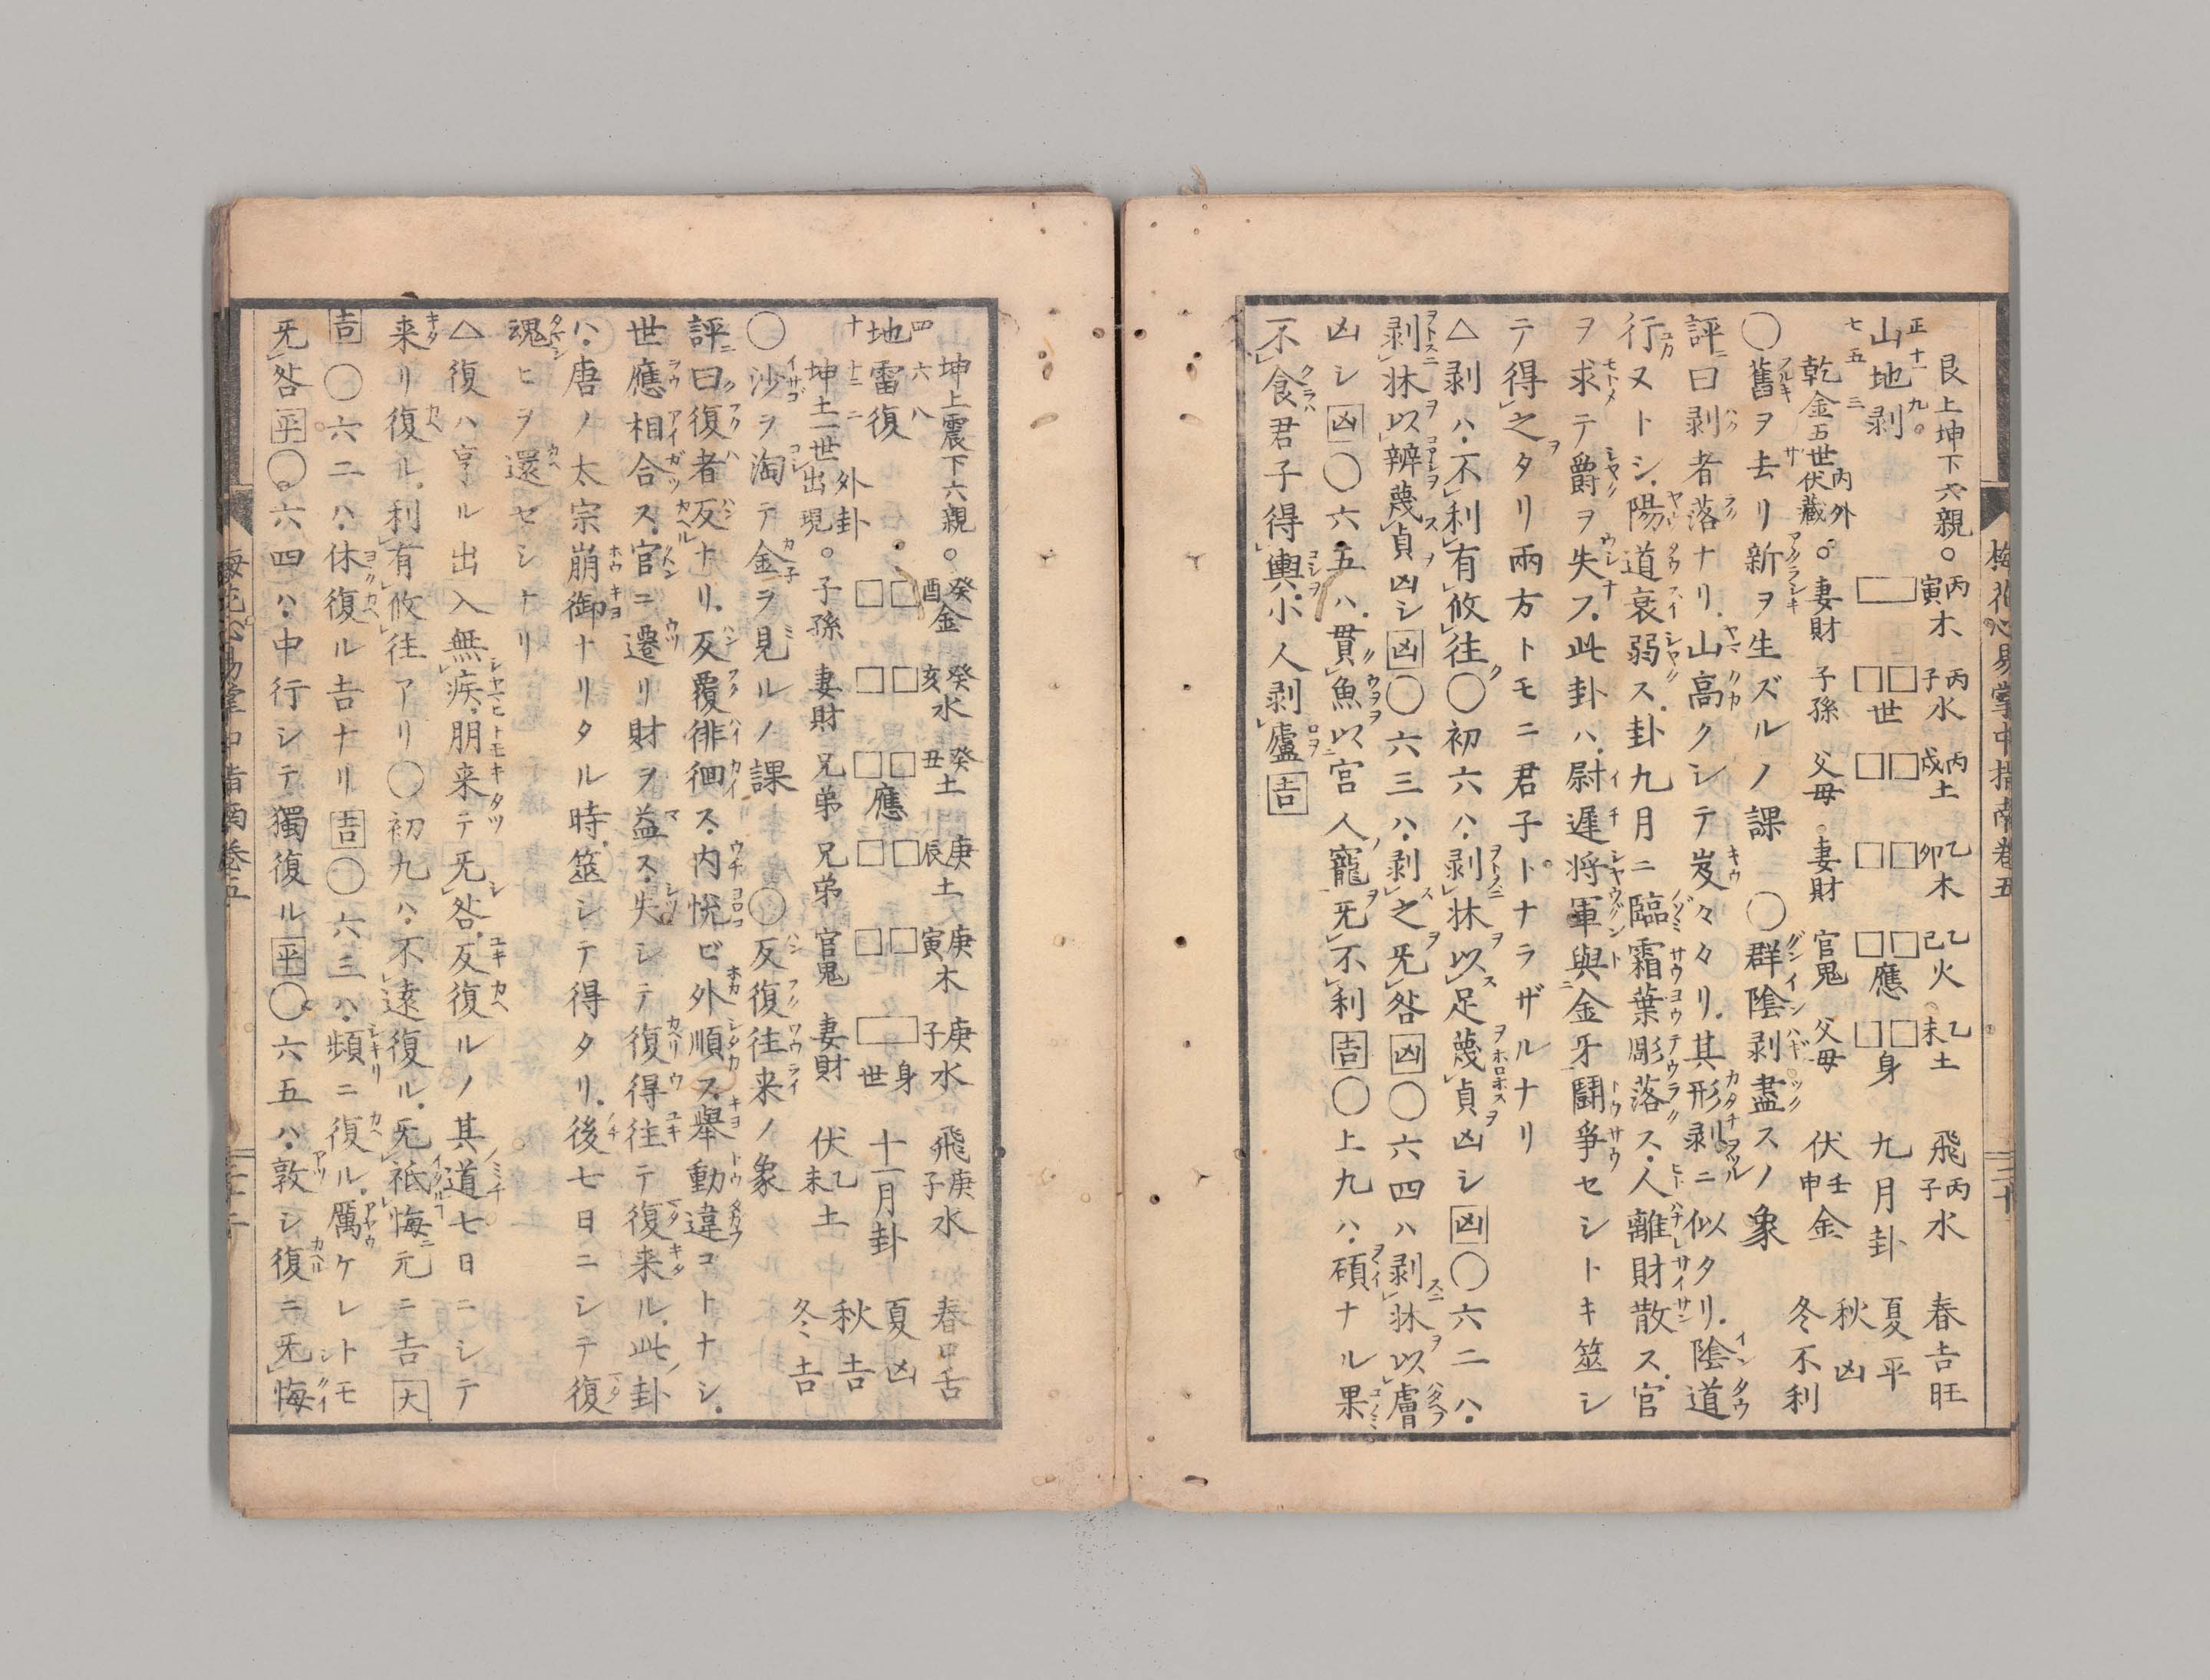 梅花心易掌中指南巻五
二十
艮上坤下六親○丙寅木 丙子水 丙戌土 乙卯木 乙巳火 乙未土 飛丙子水 春吉旺
正十一九
山地剥 世 應 身 九月卦 夏平
七五三
乾金五世伏藏 内外○妻財 子孫 父毋 妻財 官鬼 父毋 伏壬申金 秋凶 冬不利
○舊ヲ去リ新ヲ生ズルノ課 ○群陰剥盡スノ象
評ニ曰剥者落ナリ山高クシテ岌々タリ其形剥ニ似タリ陰道
行ヌトシ陽道衰弱ス卦九月ニ臨霜葉彫落ス人離財散ス官
ヲ求テ爵ヲ失フ此卦ハ尉遅将軍與金牙鬪爭セシトキ筮シ
テ得之タリ兩方トモニ君子トナラザルナリ
△剥ハ不利有攸往○初六ハ剥牀以足蔑貞凶シ凶○六二ハ
剥牀以辨蔑貞凶シ凶○六三ハ剥之旡咎凶○六四ハ剥牀以膚
凶シ凶○六五ハ貫魚以宮人寵旡不利吉○上九ハ碩ナル果
不食君子得輿小人剥廬吉
坤上震下六親○癸酉金 癸亥水 癸丑土 庚辰土 庚寅木 庚子水 飛庚子水 春口舌
四六八
地雷復 外卦 應 世身 十一月卦 夏凶
十十二二
坤土一世出現○子孫 妻財 兄弟 兄弟 官鬼 妻財 伏乙未土 秋吉 冬吉
○沙ヲ淘テ金ヲ見ルノ課 ○反復往来ノ象
評ニ曰復者反ナリ反覆徘徊ス内悦ビ外順ス舉動違コトナシ
世應相合ス官ニ遷リ財ヲ益ス失シテ復得往テ復来ル此卦
ハ唐ノ太宗崩御ナリタル時筮シテ得タリ後七日ニシテ復
魂ヒヲ還セシナリ
△復ハ亨ル出入無疾朋来テ旡咎反復ルノ其道七日ニシテ
来リ復ル利有攸往アリ○初九ハ不遠復ル旡祗悔元ニ吉大
吉○六二ハ休復ル吉ナリ吉○六三ハ頻ニ復ル厲ケレトモ
旡咎平○六四ハ中行シテ獨復ル平○六五ハ敦シ復ニ旡悔
梅花心易掌中指南巻五